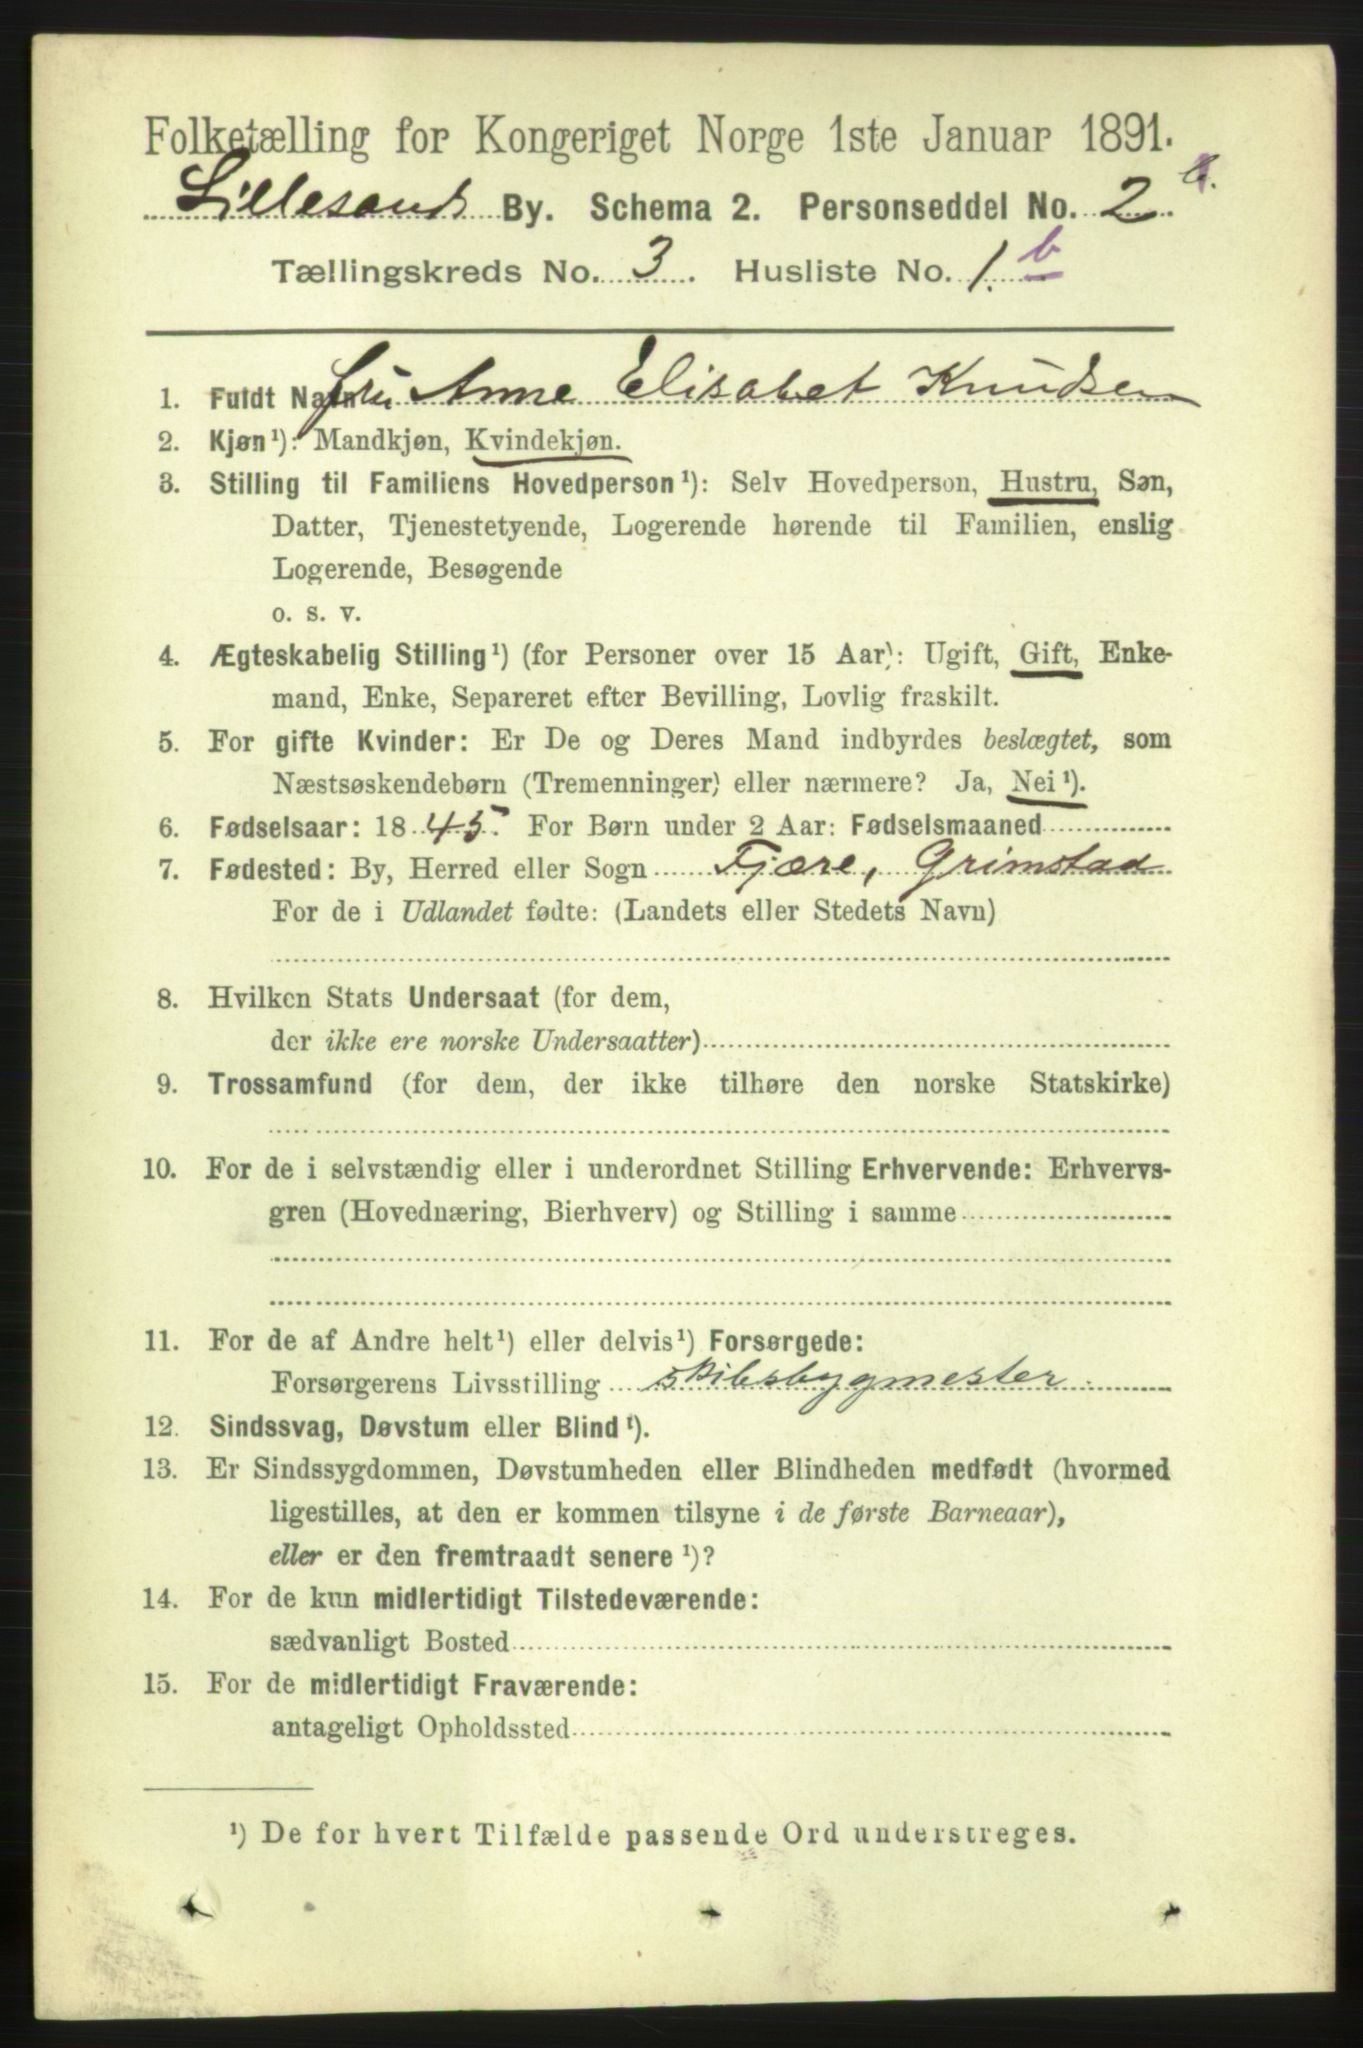 Folketælling for Kongeriget Norge 1ste Januar 1891.
Lillesand By. Schema 2. Personseddel No. 2
Tællingskreds No. 3. Husliste No. 1. b
1. Fuldt Navn: Fru Anne Elisabet Knudsen
2. Kjøn¹): Mandkjøn, Kvindekjøn.
3. Stilling til Familiens Hovedperson¹): Selv Hovedperson, Hustru, Søn,
Datter, Tjenestetyende, Logerende hørende til Familien, enslig
Logerende, Besøgende
o. s. v.
4. Ægteskabelig Stilling¹) (for Personer over 15 Aar): Ugift, Gift, Enke-
mand, Enke, Separeret efter Bevilling, Lovlig fraskilt.
5. For gifte Kvinder: Er De og Deres Mand indbyrdes beslægtet, som
Næstsøskendebørn (Tremenninger) eller nærmere? Ja, Nei¹).
6. Fødselsaar: 1845. For Børn under 2 Aar: Fødselsmaaned
7. Fødested: By, Herred eller Sogn Fjære, Grimstad
For de i Udlandet fødte: (Landets eller Stedets Navn)
8. Hvilken Stats Undersaat (for dem,
der ikke ere norske Undersaatter)
9. Trossamfund (for dem, der ikke tilhøre den norske Statskirke)
10. For de i selvstændig eller i underordnet Stilling Erhvervende: Erhvervs-
gren (Hovednæring, Bierhverv) og Stilling i samme
11. For de af Andre helt¹) eller delvis¹) Forsørgede:
Forsørgerens Livsstilling skibsbygmester.
12. Sindssvag, Døvstum eller Blind¹).
13. Er Sindssygdommen, Døvstumheden eller Blindheden medfødt (hvormed
ligestilles, at den er kommen tilsyne i de første Barneaar),
eller er den fremtraadt senere¹)?
14. For de kun midlertidigt Tilstedeværende:
sædvanligt Bosted
15. For de midlertidigt Fraværende:
antageligt Opholdssted
¹) De for hvert Tilfælde passende Ord understreges.